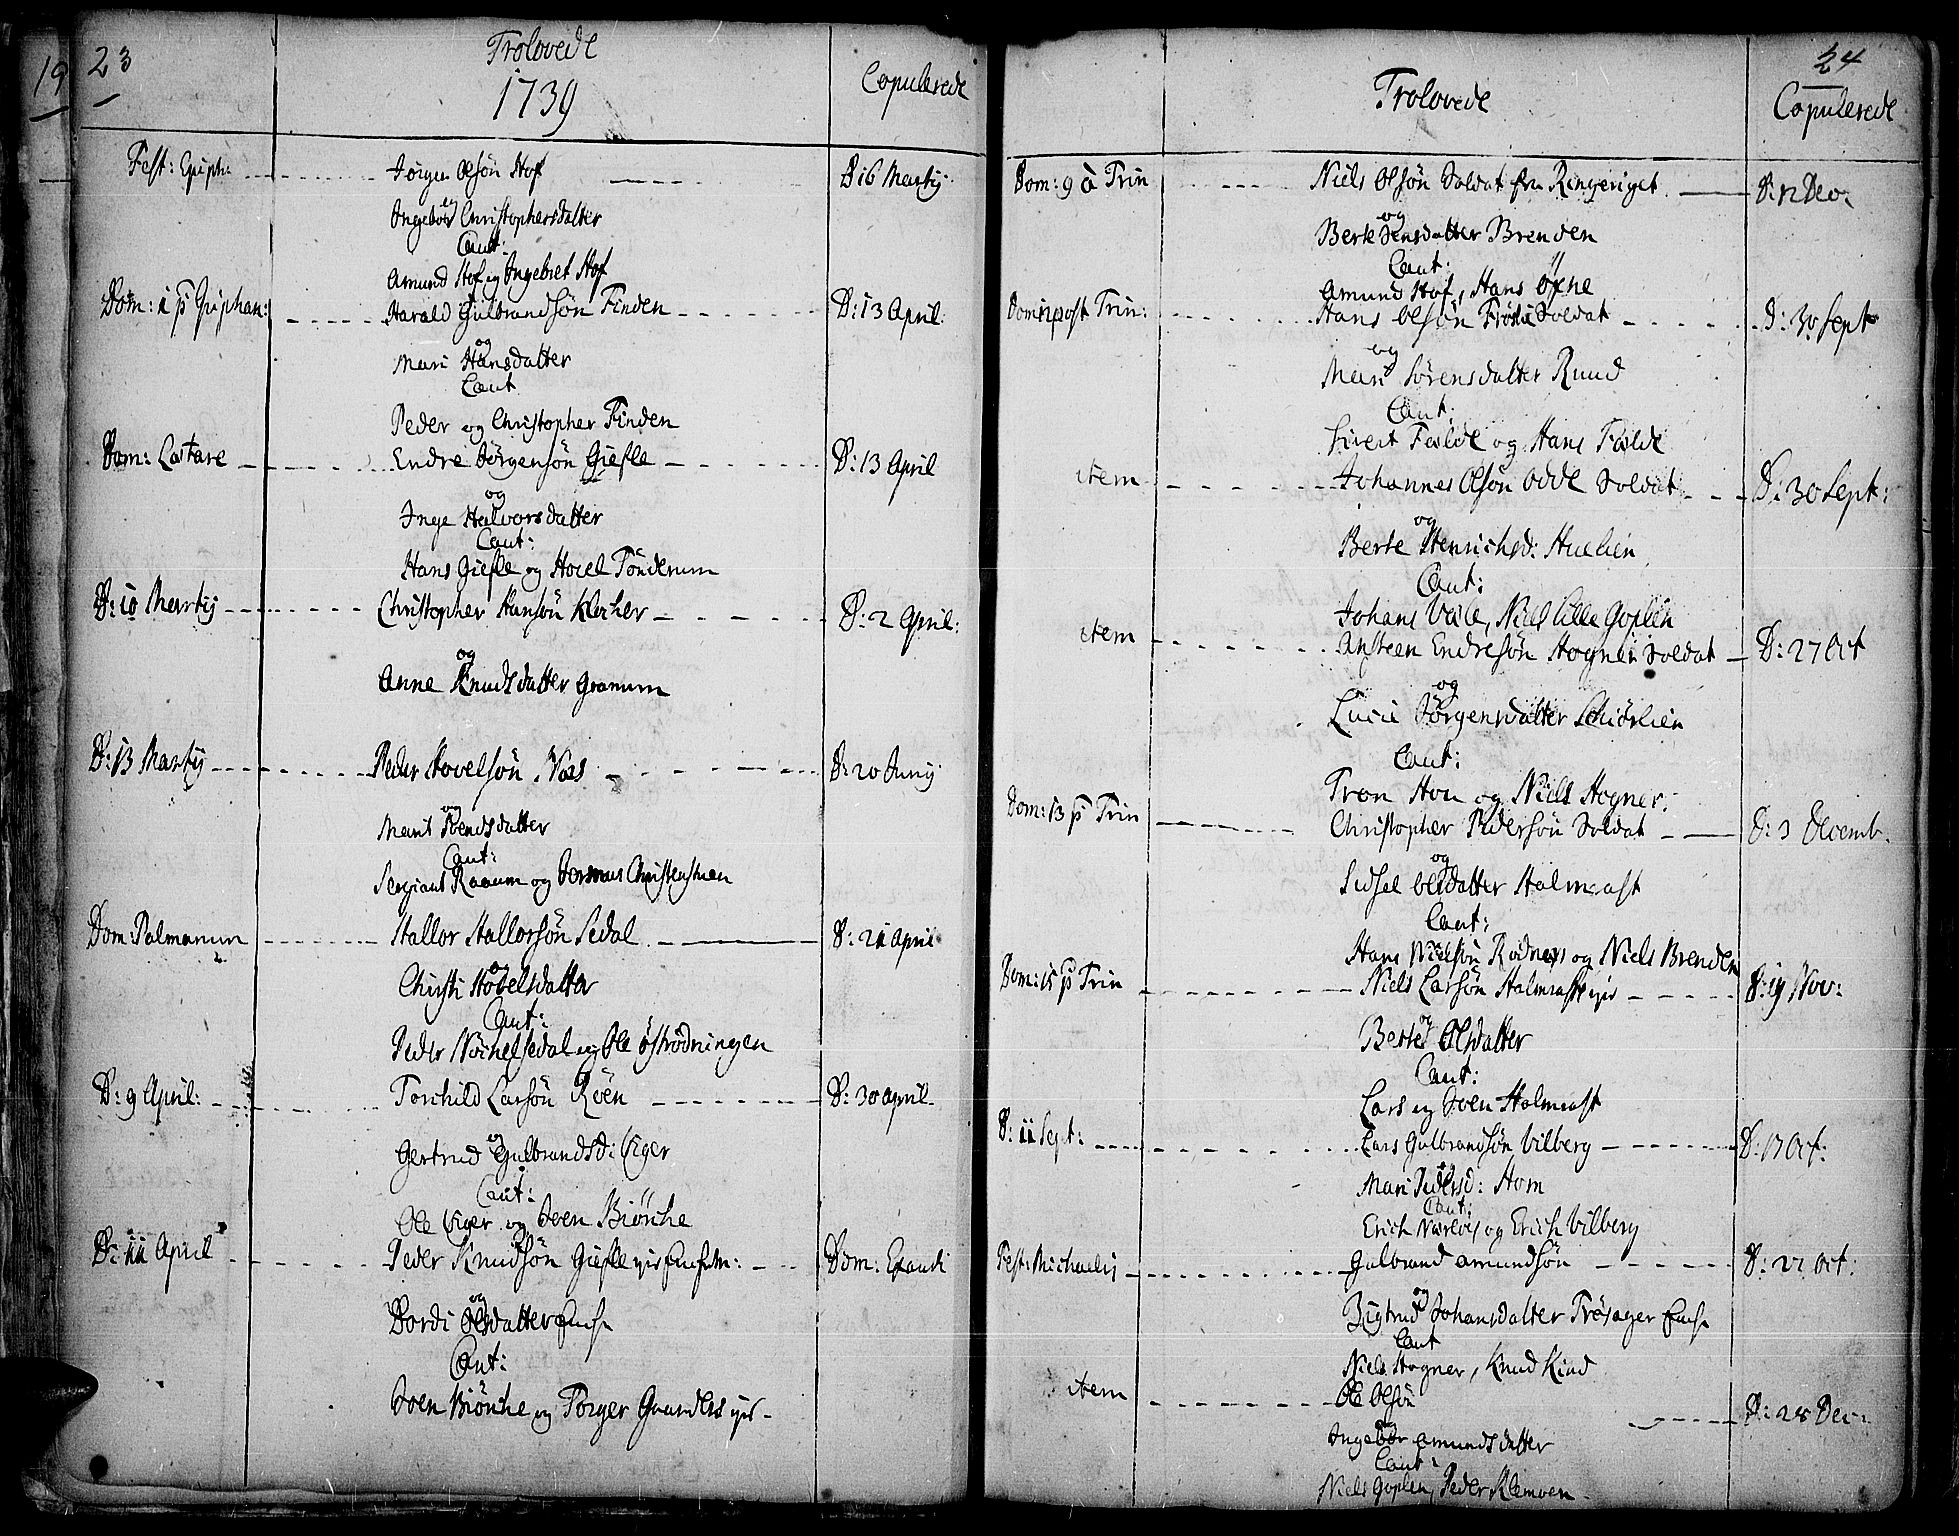 19
23
Trolovede
1739
Copulerede
Fest: Epiph: Jörgen Olsön Hof D 16 Martij
og
Ingebor Christophersdatter
Caut:
Amund Hof og Ingebret Hof
Dom: 1 p Epiphan: Harald Gulbrandsön Finden D: 13 April
og
Mari Hansdatter
Caut
Peder og Christopher Finden
Dom: Lætare Endre Jörgensön Giefle D: 13 April
og
Inge Halvorsdatter
Caut:
Hans Giefle og Hovel Tönderum
D: 10 Martij Christopher Hansön D: 2 April:
og
Anne Knudsdatter Granum
D: 13 Martij Peder Hovelsön D: 20 Junij
og
Marit Svendsdatter
Caut:
Sergiant og
Dom: Palmarum Hallor Hallorsön Sedal D: 21 April
og
Christi Hovelsdatter
Caut:
Peder og Ole Öströdningen
D: 9 April: Torchild Larsön Röen D: 30 April
og
Gertrud Gulbrandsd: Eger
Caut:
Ole Eger og Joen Biörche
D: 11 April Peder Knudsön Giefle D Dom: Exaudi
og
Dordi Olsdatter
Caut:
Joen Biörche og Torger
24
Trolovede
Copulerede
Dom: 9 à Trin Niels Olsön Soldat fra Ringeriget D: 12 Dec:
og
Berte Jensdatter Brenden
Caut:
Amund Hof, Hans Öxne
Dom: 12 post Trin: Hans Olsön Soldat D: 30 Sept
og
Mari Sörensdatter Ruud
Caut:
Sivert Falde og Hans Falde
item Johannes Olsön Odde Soldat D: 30 Sept:
og
Berte Henrichsd: Huelien
Caut:
Johans Vale, Niels Lille Goplen
item Ansteen Endresön Hogner Soldat D: 27 Oct
og
Lucie Jörgensdatter Schiörlien
Caut:
Tron Hou og Niels Hogner:
Dom: 13 p Trin Christopher Pedersön Soldat D: 3 Decemb.
og
Sidsel Olsdatter Halmrast
Caut:
Hans Nielsön Rodnes og Niels Brenden
Dom: 15 p Trin Niels Larsön Halmrast D: 19 Nov:
og
Berte Olsdatter
Caut:
Lars og Joen Halmrast
D: 11 Sept: Lars Gulbrandsön Vilberg D: 13 Oct:
Mari Pedersd: Hom
Caut:
Erich og Erich Vilberg
Fest: Michaelis Gulbrand Amundsön D: 21 Oct:
og
Sigtrud Johansdatter Trösager
Caut
Niels Hogner, Knud Kind
item Ole Olsön D: 28 Dec:
og
Ingebor Amundsdatter
Caut:
Niels Goplen, Peder Klemoen